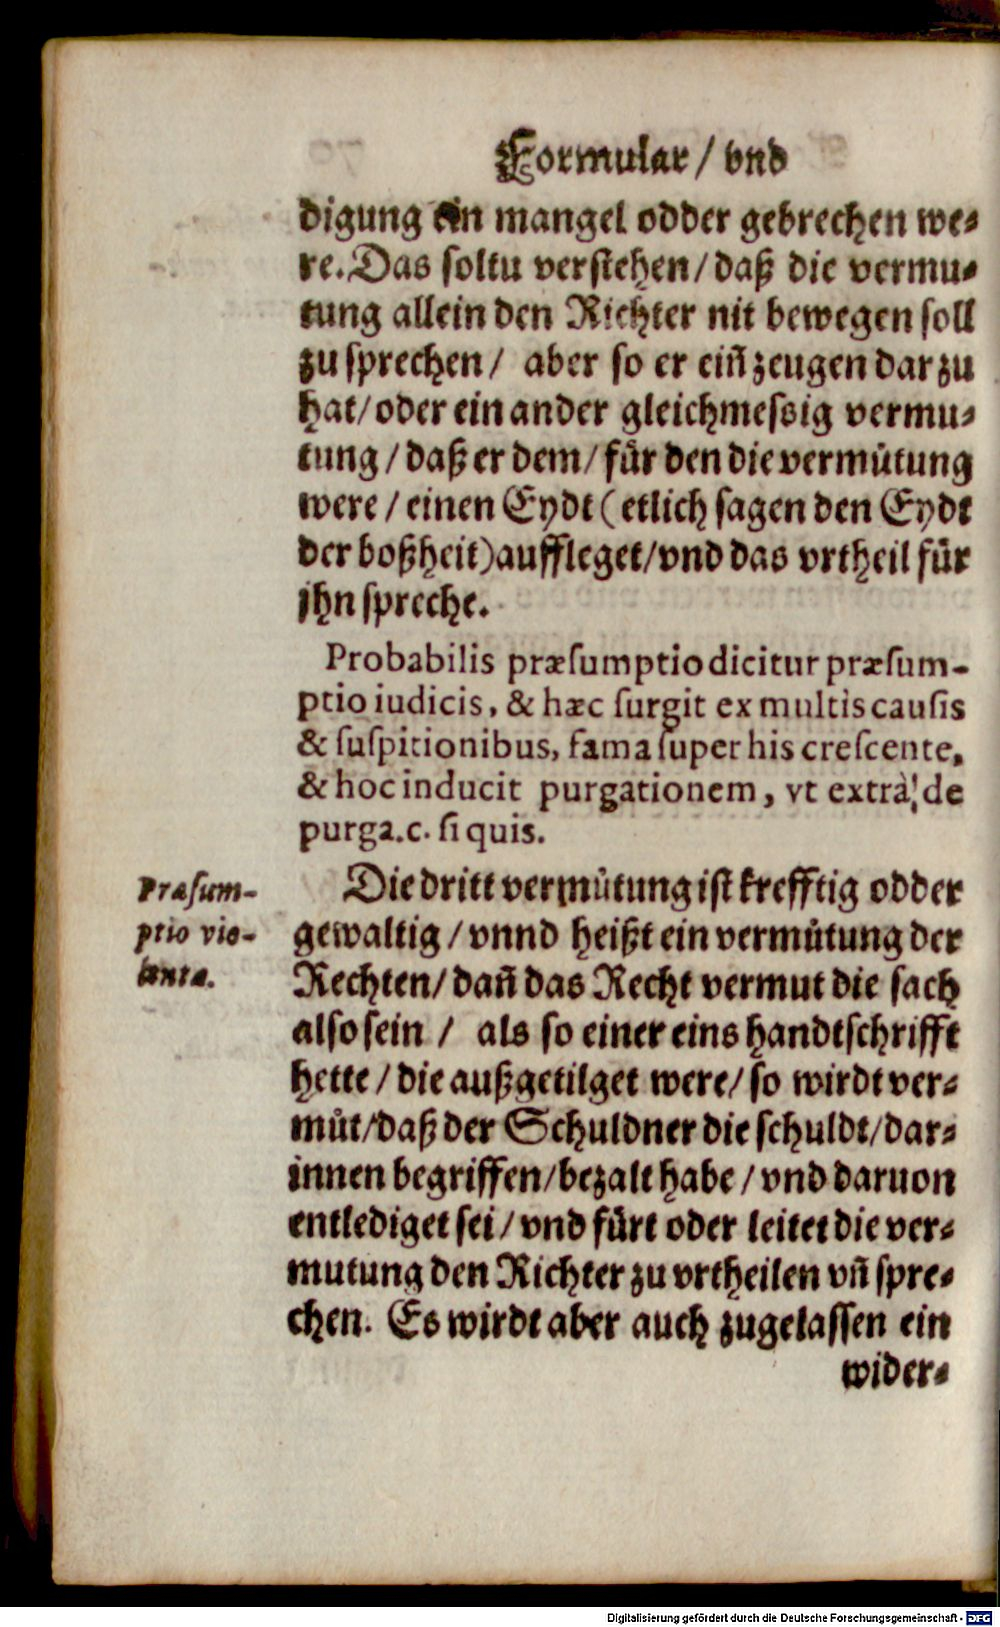 Formular / vnd
digung ein mangel odder gebrechen we-
re. Das soltu verstehen / daß die vermu-
tung allein den Richter nit bewegen soll
zu sprechen / aber so er eiñ zeugen dar zu
hat / oder ein ander gleichmessig vermu-
tung / daß er dem / für den die vermůtung
were / einen Eydt ( etlich sagen den Eydt
der boßheit) auffleget / vnd das vrtheil für
jhn spreche.
Probabilis præsumptio dicitur præsum-
ptio iudicis, & hæc surgit ex multis causis
& suspitionibus, fama super his crescente,
& hoc inducit purgationem, vt extrà, de
purga. c. si quis.
Præsum-
ptio vio-
lenta.
Die dritt vermůtung ist krefftig odder
gewaltig / vnnd heißt ein vermůtung der
Rechten / dañ das Recht vermut die sach
also sein / als so einer eins handtschrifft
hette / die außgetilget were / so wirdt ver-
můt / daß der Schuldner die schuldt / dar-
innen begriffen / bezalt habe / vnd daruon
entlediget sei / vnd fürt oder leitet die ver-
mutung den Richter zu vrtheilen vñ spre-
chen. Es wirdt aber auch zugelassen ein
wider-
Digitalisierung gefördert durch die Deutsche Forschungsgemeinschaft - DFG